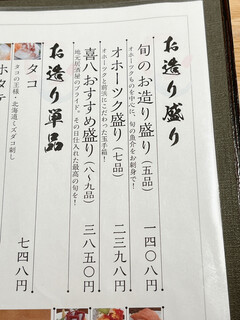 お造り盛り
旬のお造り盛り（五品）
オホーツクものを中心に、旬の魚介をお刺身で！
一四〇八円
オホーツク盛り（七品）
オホーツクと前浜にこだわった玉手箱！
二三九八円
喜八おすすめ盛り（八～九品）
地元居酒屋のプライド。その日仕入れた最高の旬を！
三八五〇円
お造り単品
タコ
タコの王様・北海道ミズダコ刺し
七四八円
ホタテ